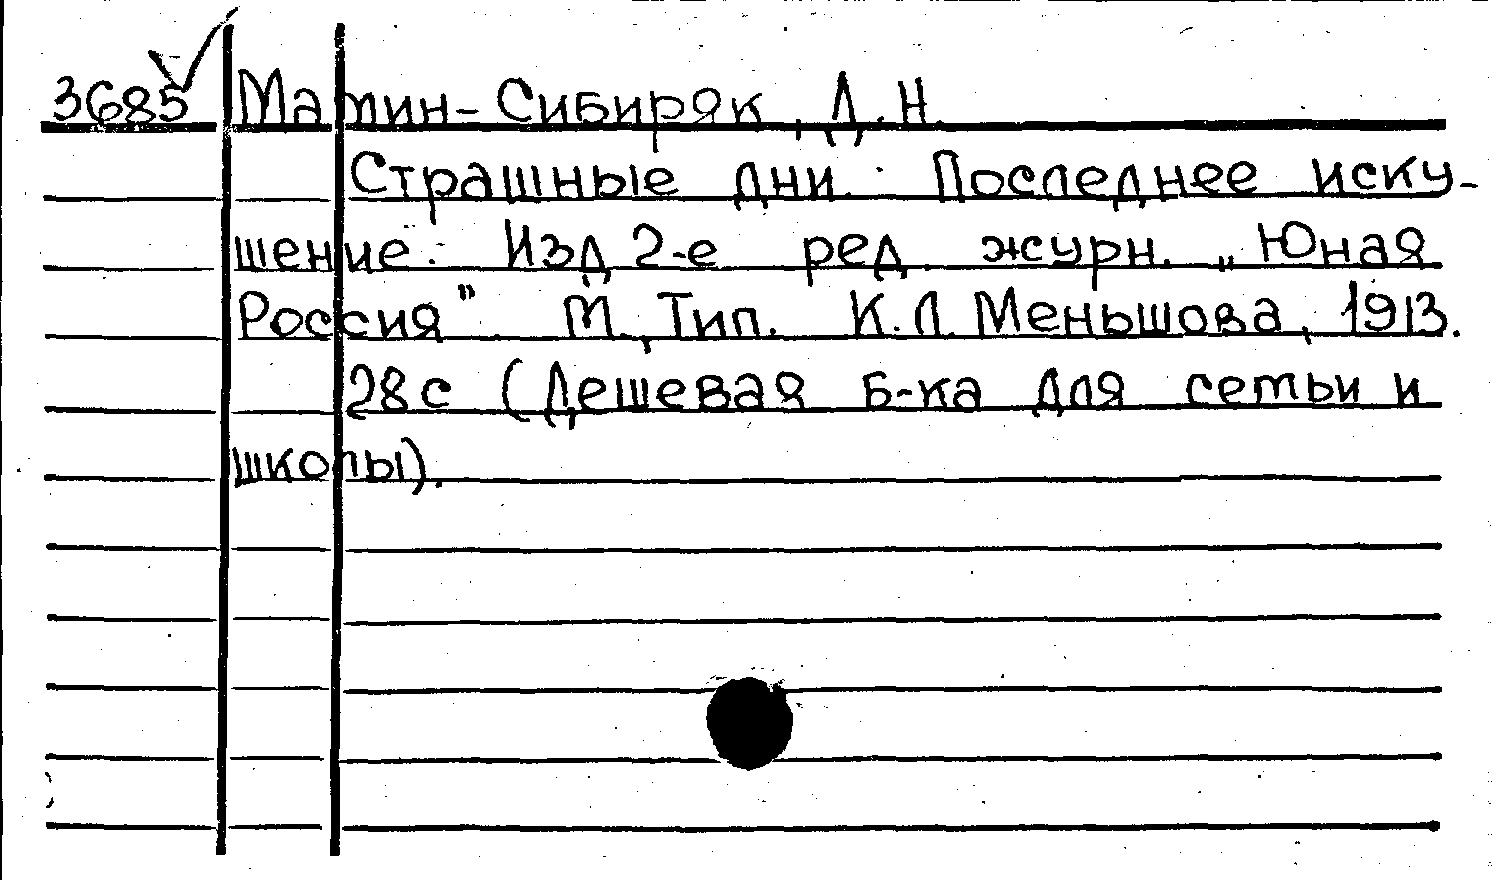 3685 Мамин-Сибиряк, Д.Н.
Страшные дни. Последнее иску-
шение. Изд 2-е ред. журн. „Юная
Россия". М., Тип. К.Л. Меньшова, 1913.
28с (Дешевая б-ка для сетьи и
школы).